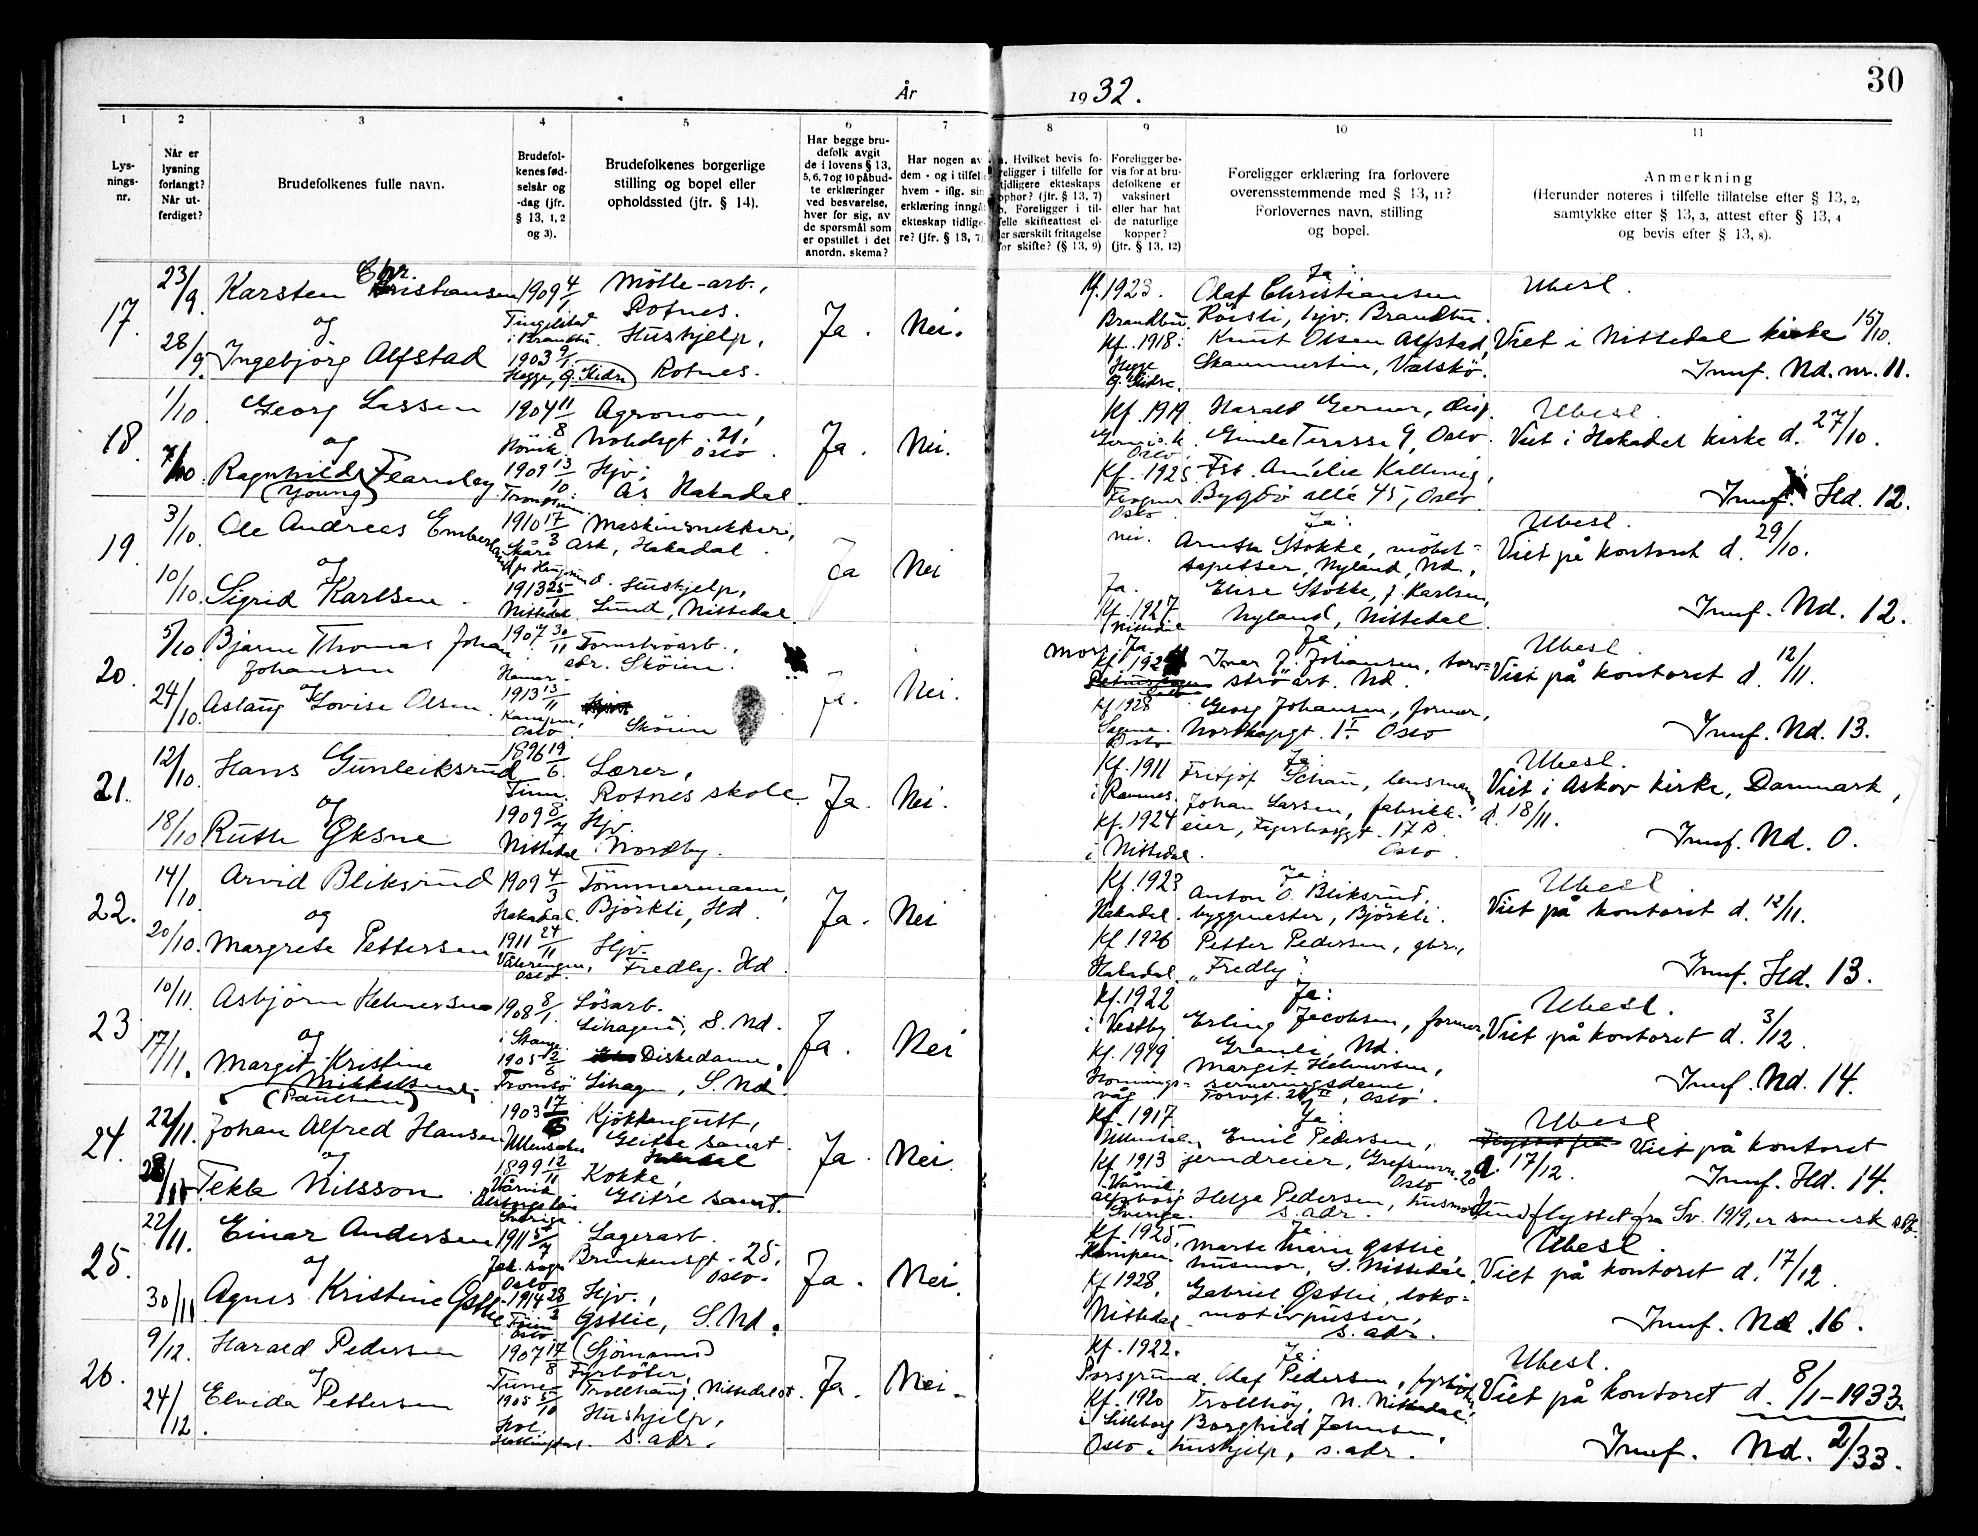 30
År 1932.
1
Lysningsnr.
2
Når er lysning forlangt? Når utferdiget?
3
Brudefolkenes fulle navn.
4
Brudefolkenes fødselsår og -dag (jfr. § 13, 1, 2 og 3).
5
Brudefolkenes borgerlige stilling og bopel eller opholdssted (jfr. § 14).
6
Har begge brudefolk avgit de i lovens § 13, 5, 6, 7 og 10 påbudte erklæringer ved besvarelse, hver for sig, av de spørsmål som er opstillet i det anordn. skema?
7
Har nogen av dem - og i tilfelle hvem - iflg. sin erklæring inngå ekteskap tidligere? (jfr. § 13, 7)
8
a. Hvilket bevis foreligger i tilfelle for tidligere ekteskaps ophør? (jfr. § 13, 7)
b. Foreligger i tilfelle skifteattest eller særskilt fritagelse for skifte? (§ 13, 9)
9
Foreligger bevis for at brudefolkene er vaksinert eller har hat de naturlige kopper? (jfr. § 13, 12)
10
Foreligger erklæring fra forlovere overensstemmende med § 13, 11? Forlovernes navn, stilling og bopel.
11
Anmerkning
(Herunder noteres i tilfelle tillatelse efter § 13, 2, samtykke efter § 13, 3, attest efter § 13, 4 og bevis efter § 13, 8).
17.
23/9.
28/9.
Karsten Christiansen
og
Ingebjörg Alfstad
1909 4/1
Tingelstad
i Brandbu
1903 9/1
Hegge, Ø. Slidre
Mölle-arb.,
Rotnes.
Hushjelp,
Rotnes.
Ja.
Nei.
1923.
Brandbu.
Kf. 1918:
Hegge
Ø. Slidre.
Ja:
Olaf Christiansen
Röisli, Brandbu.
Knut Olsen Alfstad,
Skammestein, Vatskö.
Ubesl.
Viet i Nittedal kirke 15/10.
Innf. Nd. nr. 11.
18.
1/10.
7/10
Georg Lassen
og
Ragnhild Fearnley
(Young)
1904 11/8
Hövik
1909 13/10
Agronom,
Oslo
Hjv.
Ås. Hakadal.
Ja.
Nei.
Kf. 1919
Oslo
Kf. 1925
Frogner
Oslo
Harald Gerner, disp.
Gimle Terrsse 9, Oslo.
Frk. Amélie Kallevig,
Bygdö allé 45, Oslo
Ubesl.
Viet i Hakadal kirke d. 27/10.
Innf. Hd. 12.
19.
3/10.
10/10.
Ole Andreas Emberland
og
Sigrid Karlsen.
1910 17/3
Skåre
1913 25/1
Nittedal
Maskinsnekker,
Ask, Hakadal.
Hushjelp,
Lund, Nittedal.
Ja
Nei
nei.
Ja.
Kf. 1927
Nittedal
Ja:
Arnth Stokke, möbel-
tapetser, Nyland, Nd.,
Elise Stokke, f. Karlsen,
Nyland, Nittedal.
Ubesl.
Viet på kontoret d. 29/10.
Innf. Nd. 12.
20.
5/10.
24/10.
Bjarne Thomas Johan
Johansen
og
Aslaug Lovise Olsen.
1907 30/11
Hamar.
1913 13/11
Kampen,
Oslo
Torvströarb.,
adr. Sköien.
Sköien
Ja.
Nei.
Mor: Ja
Kf. 192
Kf 1928
Sagene
Oslo
Ja
Ivar J. Johansen, torv-
ströarb. Nd.
Georg Johansen, former,
Nordkapgt. 1 I Oslo
Ubesl.
Viet på kontoret d. 12/11.
Innf. Nd. 13.
21.
12/10.
18/10
Hans Gunleiksrud
og
Ruth Öksne
1896 19/6.
Tinn.
1909 8/7
Nittedal
Lærer,
Rotnes skole.
Hjv.
Nordby.
Ja.
Nei.
Kf. 1911
i Rannes.
Kf. 1924
i Nittedal.
Ja:
Fritjof Schau, lensmann
Johan Larsen, fabrikk-
eier, 17 B.
Oslo.
Ubesl.
Viet i Askov kirke, Danmark,
d. 18/11.
Innf. Nd. 0.
22.
14/10.
20/10.
Arvid Bliksrud
og
Margrete Pettersen
1909 4/3
Hakadal.
1911 24/11
Vålerengen,
Oslo.
Tömmermann,
Björkli, Hd.
Hjv.
Fredly. Hd.
Ja.
Nei
Kf. 1923
Hakadal.
Kf. 1926
Hakadal
Ja:
Anton O. Bliksrud,
byggmester, Björkli.
Petter Pedersen, gbr.,
„Fredly".
Ubesl.
Viet på kontoret d. 12/11.
Innf. Hd. 13.
23
10/11.
17/11.
Asbjörn Helmersen
og
Margit Kristine
Mikkelsen.
(Paulsen)
1908 8/1.
i Stange.
1905 12/6
Tromsö
Lösarb.
Lihagen, S. Nd.
Diskedame.
Lihagen, S. Nd.
Ja.
Nei
Kf. 1922
i Vestby
Kf. 1919
Honnings-
våg
Ja:
Erling Jacobsen, former,
Granli, Nd.
Margit Helmersen,
serveringsdame,
Torvgt. Oslo.
Ubesl.
Viet på kontoret d. 3/12.
Innf. Nd. 14.
24.
22/11.
28/11
Johan Alfred Hansen
og
Tekla Nilsson
1903 17/6
Ullensaker
1899 12/11
Sverige.
Kjökkengutt,
Glitre sanat.
Hakadal
Kokke,
Glitre sanat.
Ja.
Nei.
Kf. 1917
Ullensaker
Kf. 1913
Sverige.
Ja:
Emil Pedersen,
jerndreier, Grefsenvn. 20
Oslo
Helga Pedersen, husmor
s. adr.
Ubesl
Viet på kontoret
d. 17/12.
Innf. Hd. 14.
Hun flyttet fra Sv. 1919, er svensk stb.
25.
22/11.
30/11
Einar Andersen
og
Agnes Kristine Gstlie
1911 5/7
Oslo
1914 28/3
Oslo
Lagerarb.
Brinkensgt. 25.
Oslo.
Hjv.,
Gstlie, S. Nd.
Ja.
Nei.
Kf. 1925,
Kampen.
Kf 1928,
Nittedal
Ja
Marta Marie Gstlie,
husmor, S. Nittedal.
Gabriel Gstlie, loko-
motivpusser,
s. adr.
Ubesl.
Viet på kontoret d. 17/12.
Innf. Nd. 16.
26.
9/12.
24/12.
Harald Pedersen
og
Elvida Pettersen
1907 17/8
Tune
1905 5/10
Hol
Hallingdal.
(Sjömann)
Fyrböter,
Trollhaug, Nittedal st.
Hushjelp,
s. adr.
Ja.
Nei.
Kf. 1922.
Porsgrund.
Kf. 1920
i Lilleborg
Oslo.
Ja:
Olaf Pedersen, fyrböter
Trollhöy, N. Nittedal.
Borghild Johnsen,
hushjelp, s. adr.
Ubesl.
Viet på kontoret d. 8/1-1933.
Innf. Nd. 2/33.